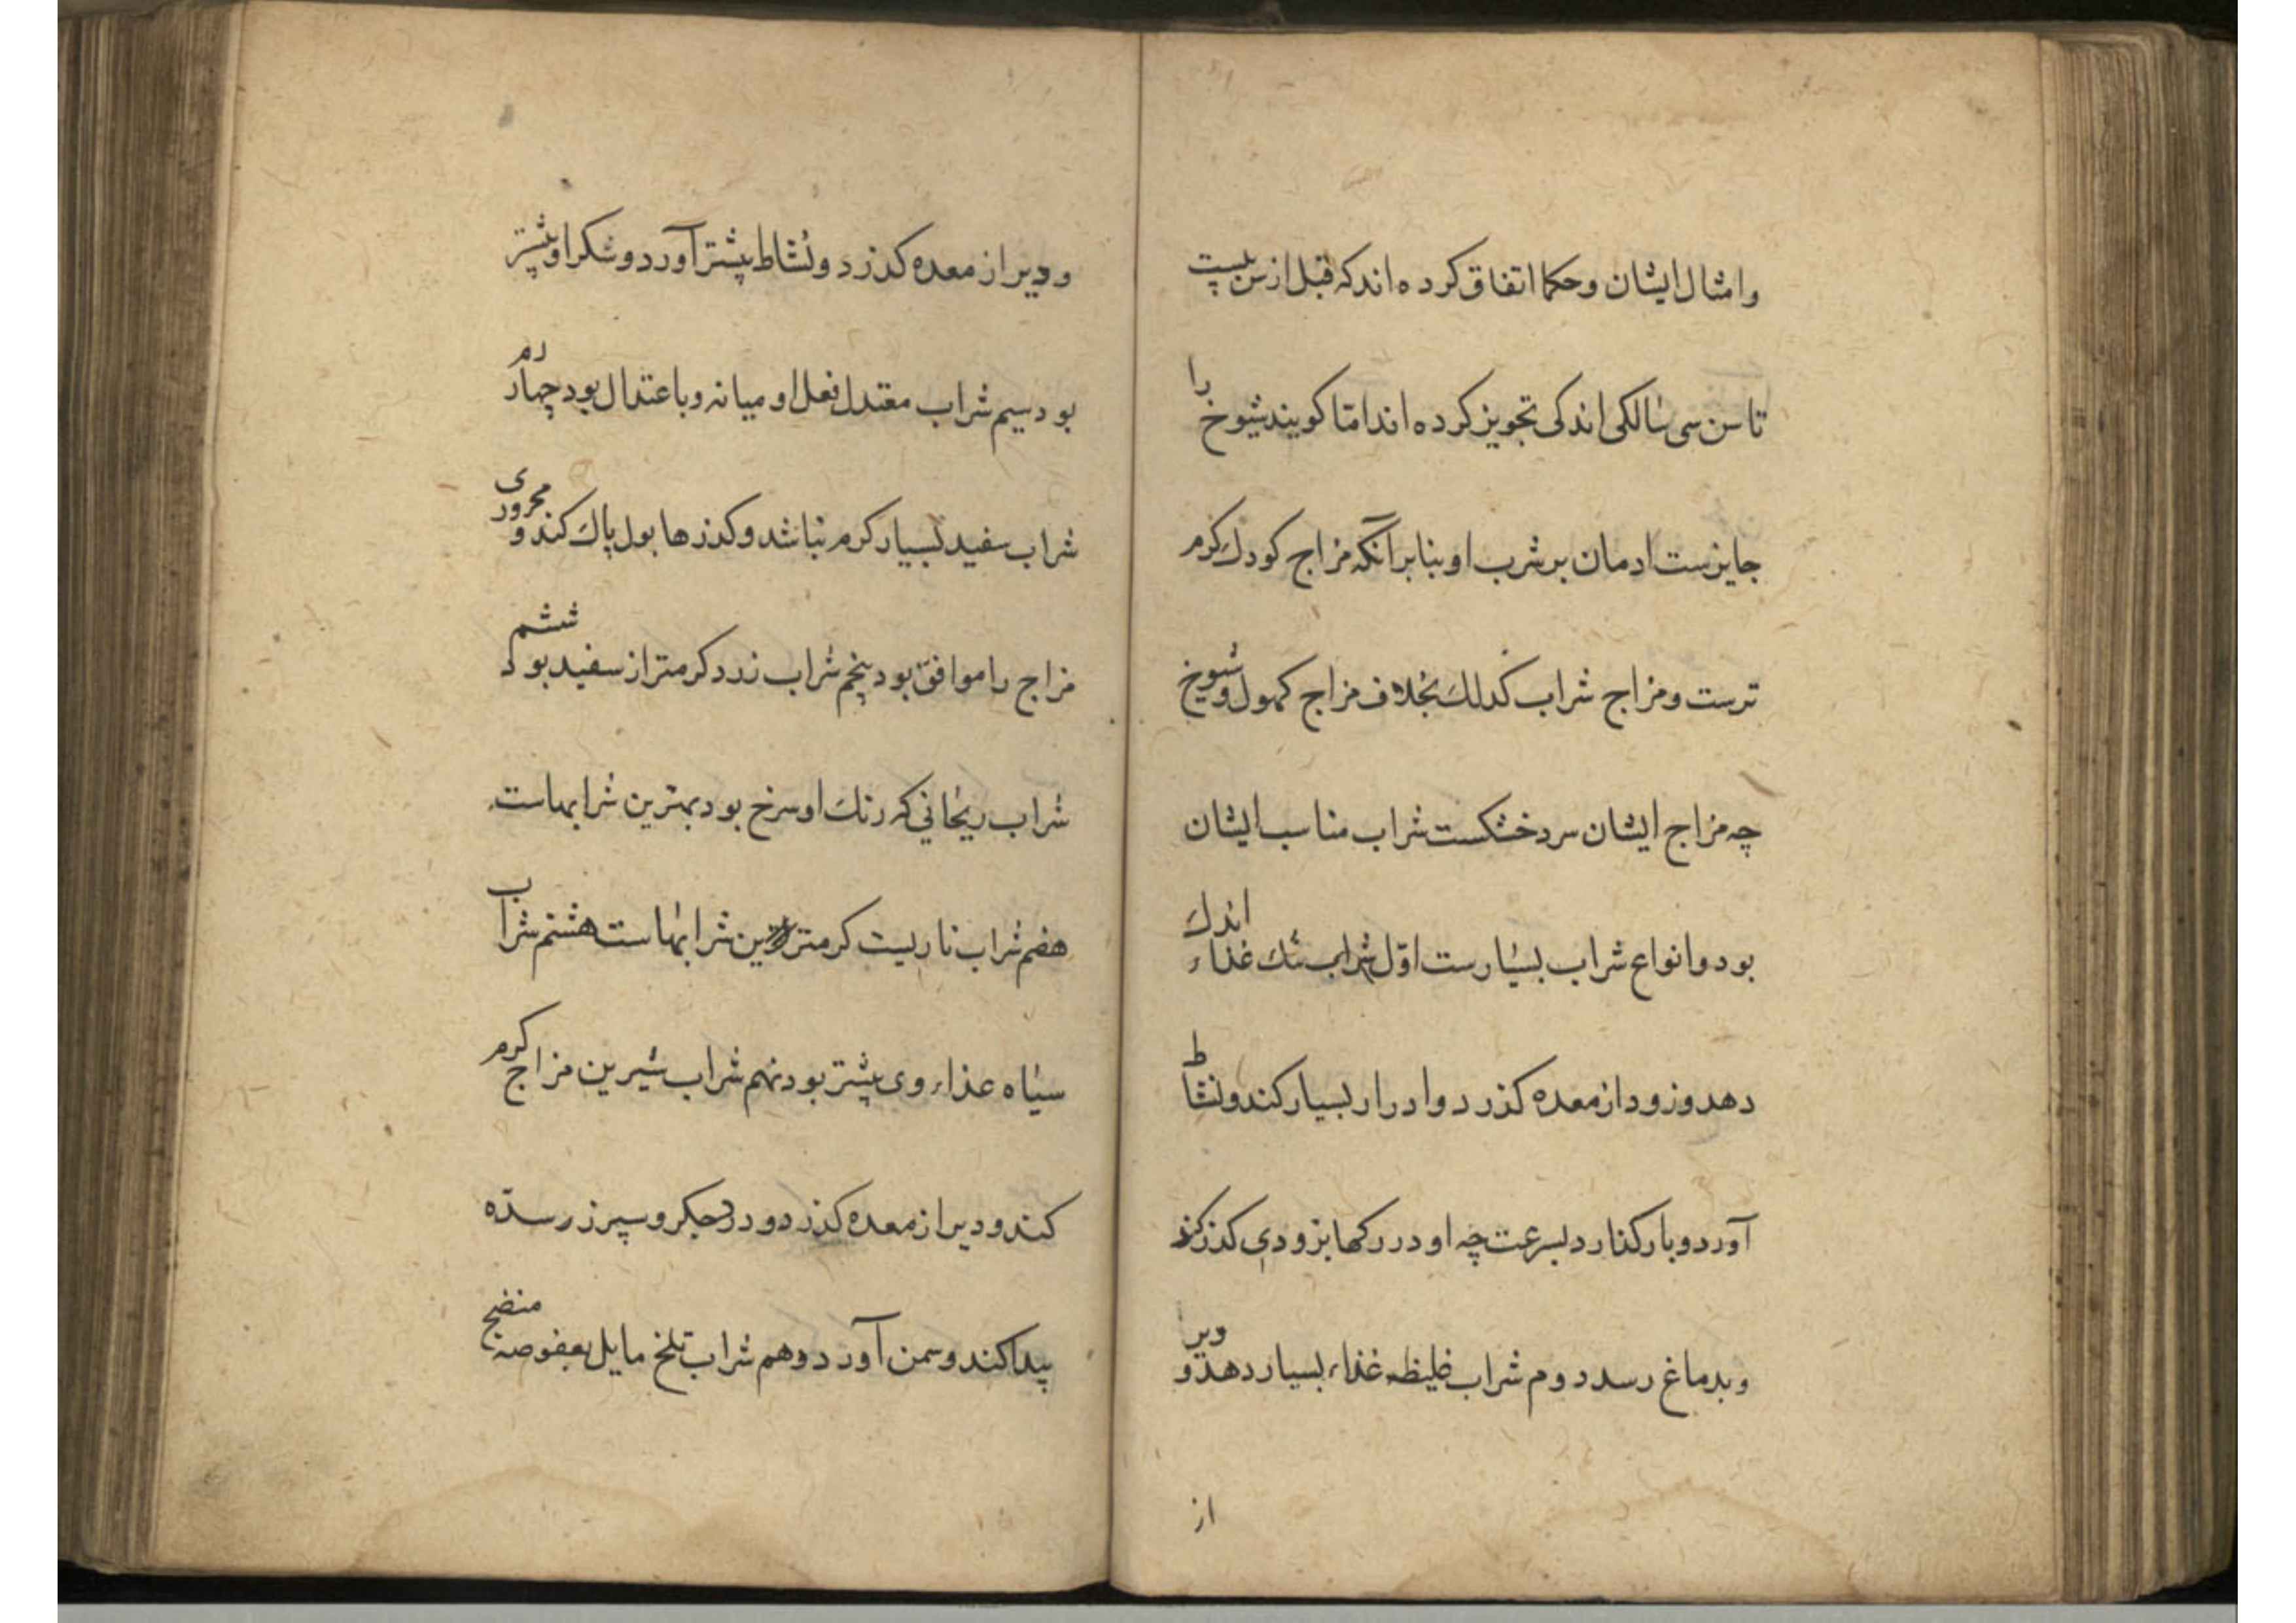 وامثال ایشان وحکما اتفاق کرده اند که قبل از سن بیست
تا سن سی سالکی اندکی تجویز کرده اند امّا کویند شیوخ را
جایزست ادمان بر شرب او بنابر آنکه مزاج کودك کرم
ترست ومزاج شراب کذلك بخلاف مزاج کهول وشیوخ
چه مزاج ایشان سرد خشکست شراب مناسب ایشان
بود وانواع شراب بسیارست اوّل شراب تنك غذاء اندك
دهد وزود از معده کذرد وادرار بسیار کند ونشاط
آورد وبار کذارد بسرعت چه او در رکها بزودی کذر کند
وبدماغ رسد دوم شراب غلیظ غذاء بسیار دهد ودیر
از
ودیر از معده کذرد ونشاط بیشتر آورد وسکر او بیشتر
بود سیم شراب معتدل فعل او میانه وباعتدال بود چهارم
شراب سفید بسیار کرم نباشد وکذرها بول پاك کند ومحروری
مزاج را موافق بود پنجم شراب زرد کرمتر از سفید بود ششم
شراب ریحانی که رنك او سرخ بود بهترین شرابهاست
هفتم شراب ناریست کرمترین شرابهاست هشتم شراب
سیاه عذاء وی بیشتر بود نهم شراب شیرین مزاج کرم
کند ودیر از معده کذرد ودر جکر وسپرز سدّه
پیدا کند وسمن آورد دهم شراب تلخ مایل بعفوصة منضج